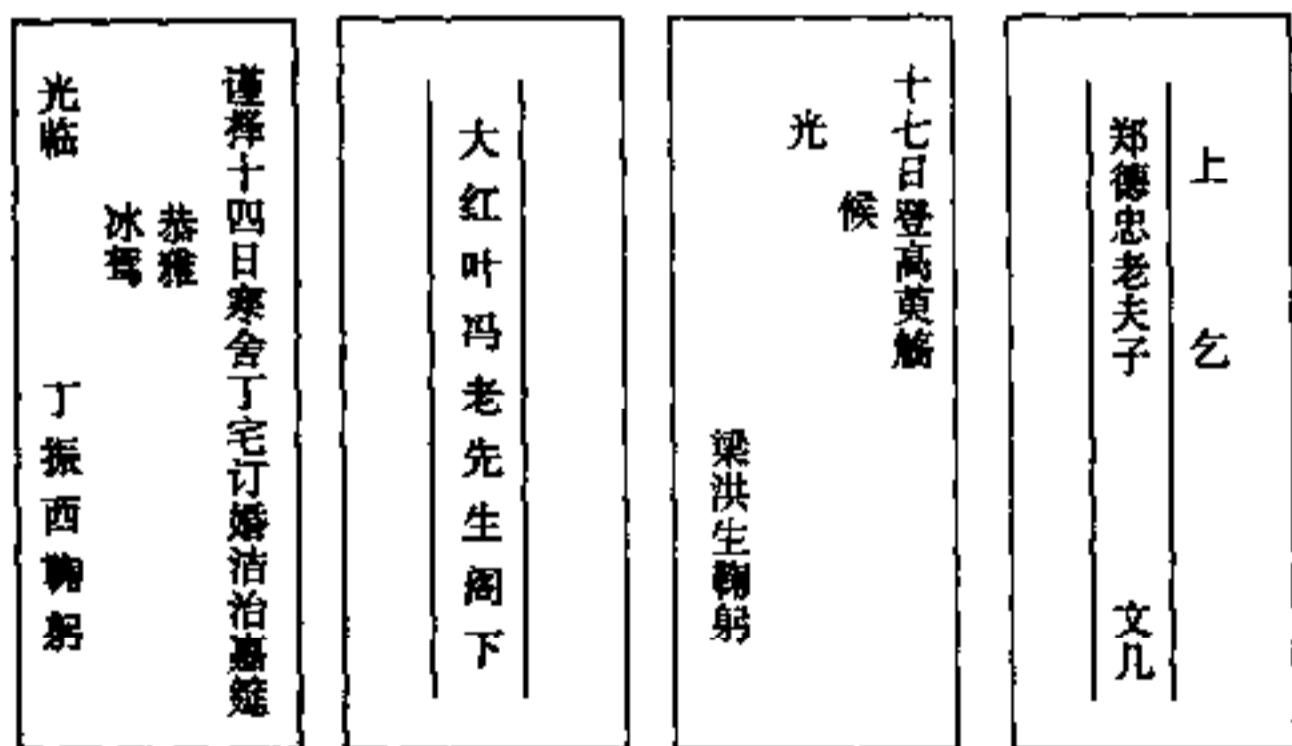 上 乞
郑德忠老夫子 文几
十七日登高萸觞
候
光
梁洪生鞠躬
大红叶冯老先生阁下
谨择十四日寒舍丁宅订婚洁治嘉筵
恭雅
冰驾
光临 丁振西鞠躬